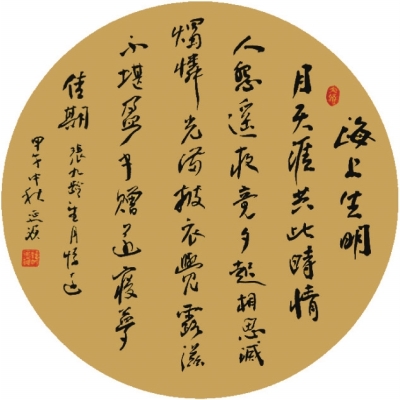 海上生明
月天涯共此時情
人怨遥夜竟夕起相思滅
燭憐光滿披衣覺露滋
不堪盈手贈還寢夢
佳期 張九齡望月懷遠
甲午中秋